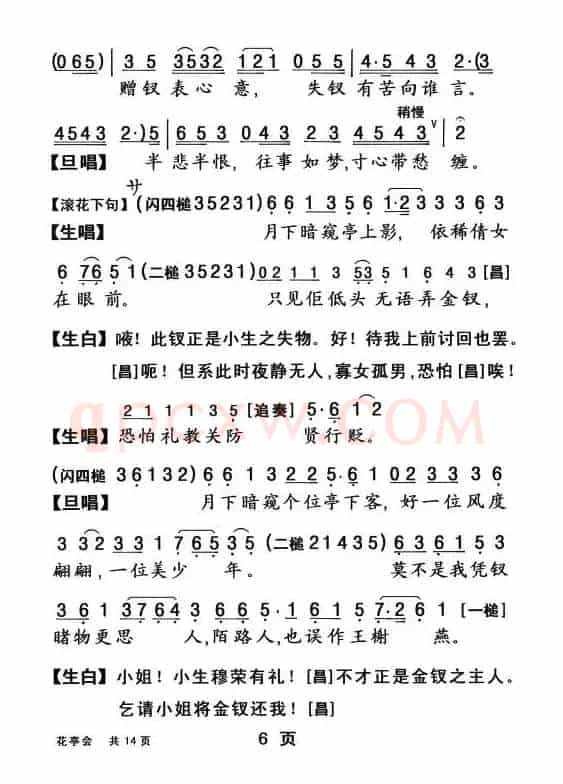 (0 6 5) | 3 5 3532 121 | 0 5 5 | 4·5 4 3 2·(3
赠钗表心意，失钗有苦向谁言。
稍慢
4543 2·)5 | 653 043 23 4543 | 2
【旦唱】半悲半恨，往事如梦，寸心带愁缠。
サ
【滚花下句】(闪四槌35231) 6 6 1 3 5 6 1·2 3 3 3 6 3
【生唱】月下暗窥亭上影，依稀倩女
6 76 5 1 (二槌35231) 021 1 3 53 5 1 6 4 3 [昌]
在眼前。只见佢低头无语弄金钗，
【生白】唊！此钗正是小生之失物。好！待我上前讨回也罢。
[昌]呃！但系此时夜静无人，寡女孤男，恐怕[昌]唉！
2 1 1 1 3 5 [追奏] 5·6 1 2
【生唱】恐怕礼教关防贤行贬。
(闪四槌36132) 6 6 1 3 225·6 1 0 2 3 3 3 6
【旦唱】月下暗窥个位亭下客，好一位风度
3 32 331 1 765 35 (二槌21435) 6 3 6 1 2 5 3
翩翩，一位美少年。莫不是我凭钗
3 6 1 3764 3 0 1 1 6 5 1 5 7·2 6 [一槌]
睹物更思人，陌路人，也误作王榭燕。
【生白】小姐！小生穆荣有礼！[昌]不才正是金钗之主人。
乞请小姐将金钗还我！[昌]
花亭会 共14页 6 页
qpcxw.COM